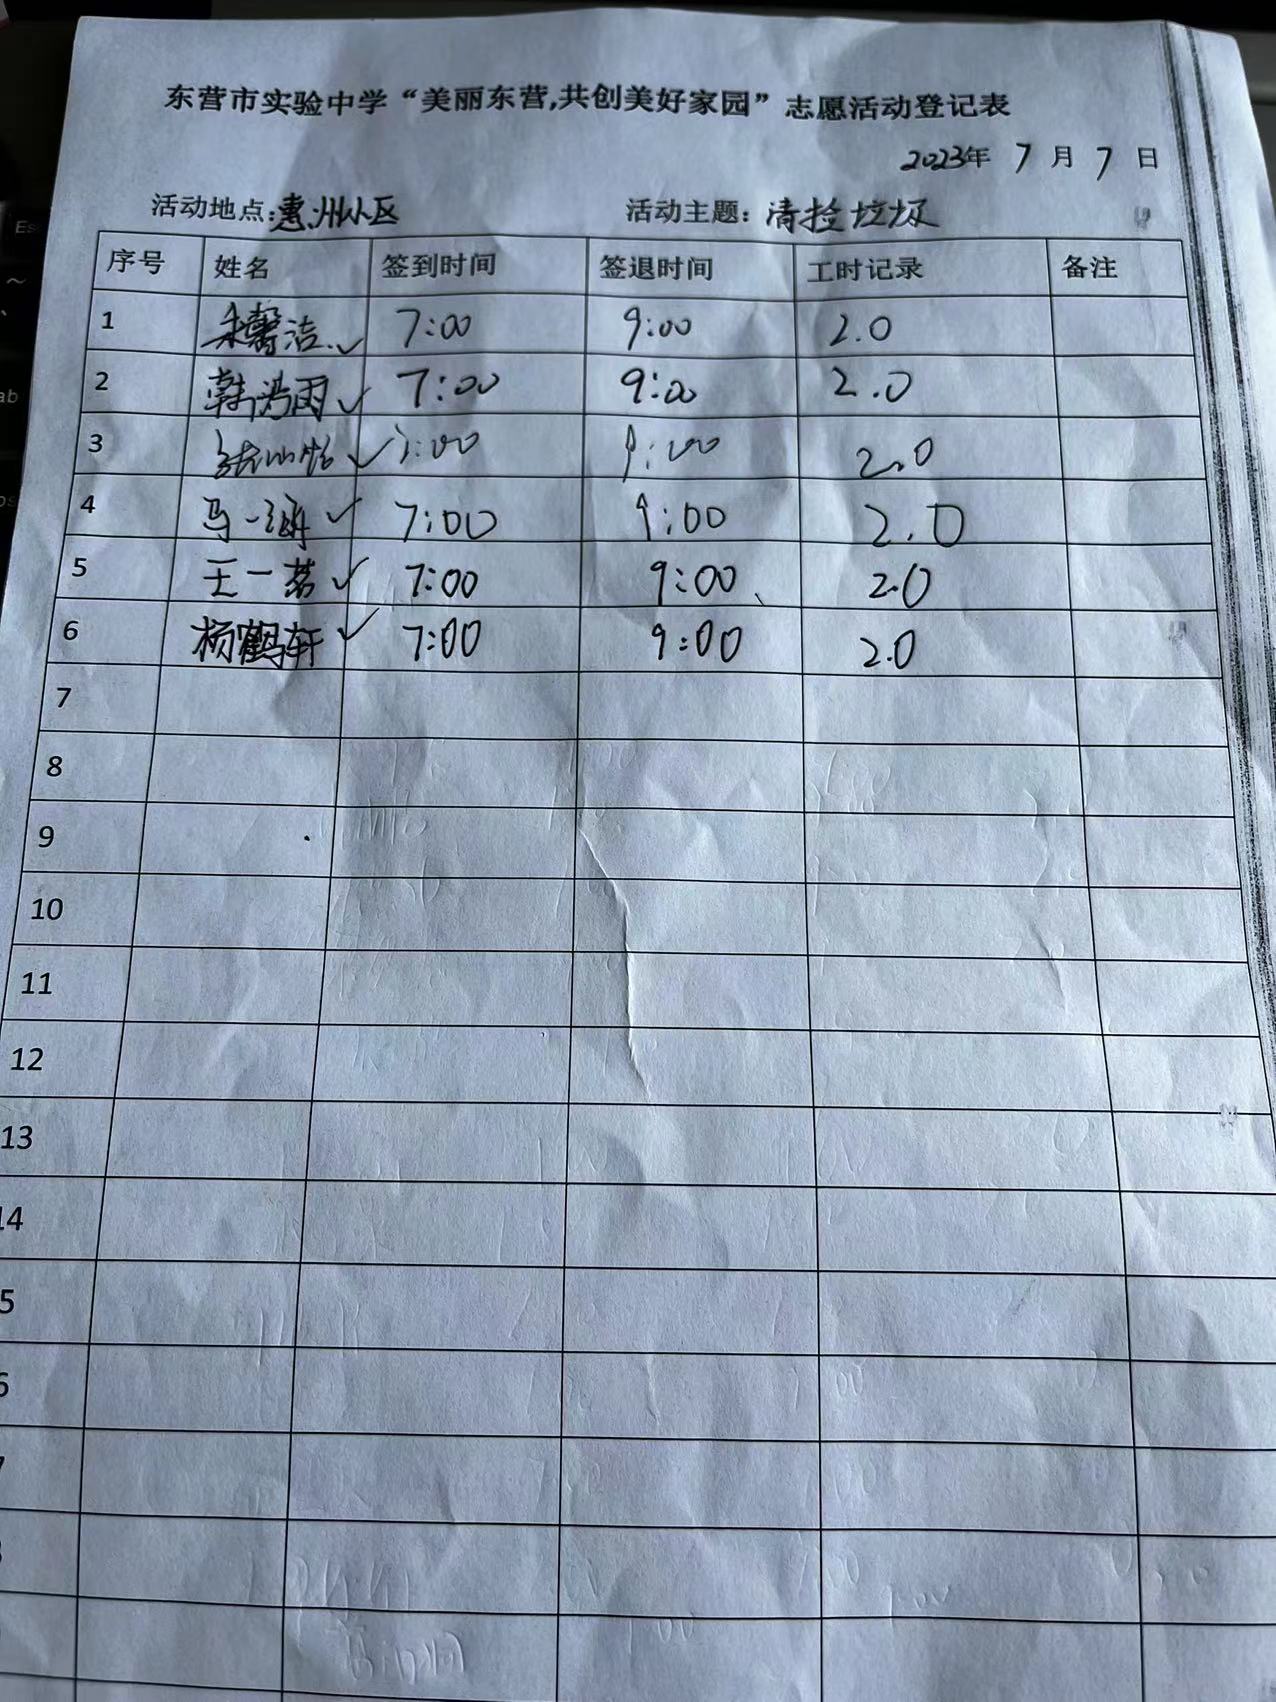 东营市实验中学“美丽东营,共创美好家园”志愿活动登记表
2023年 7 月 7 日
活动地点:惠州小区 活动主题: 清捡垃圾
序号 姓名 签到时间 签退时间 工时记录 备注
1 朱馨洁 ✓ 7:00 9:00 2.0
2 韩 雨 ✓ 7:00 9:00 2.0
3 ✓ 7:00 9:00 2.0
4 马一涵 ✓ 7:00 9:00 2.0
5 王一茗 ✓ 7:00 9:00 2.0
6 杨鹤轩 ✓ 7:00 9:00 2.0
7
8
9
10
11
12
13
14
5
6
7